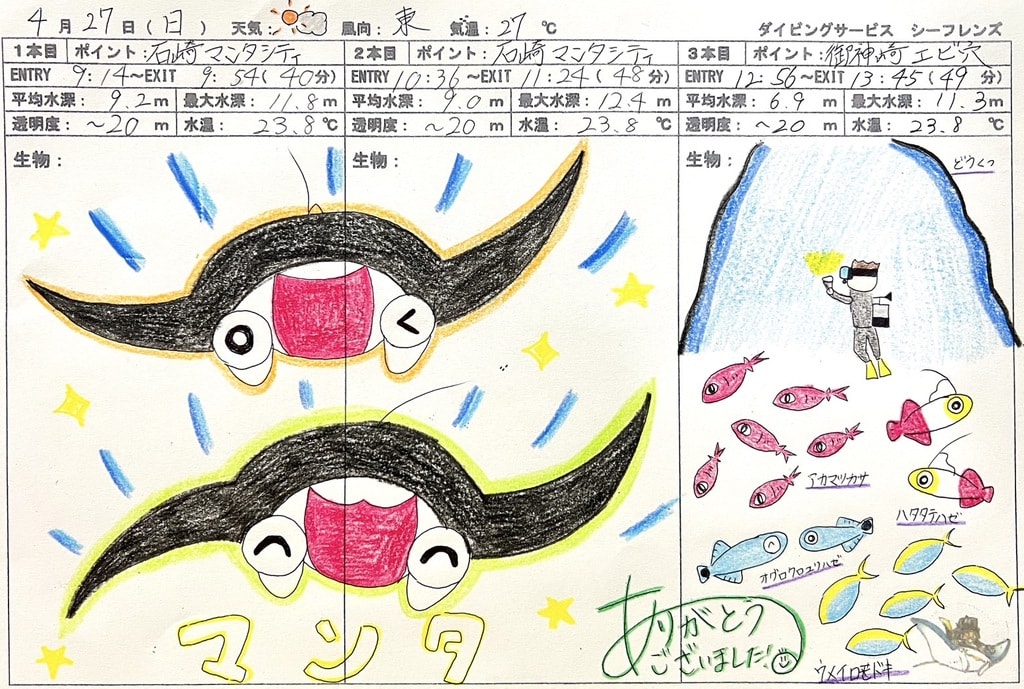 4月27日(日) 天気: 風向:東 気温:27℃
ダイビングサービス シーフレンズ
1本目 ポイント:石崎マンタシティ
ENTRY 9:14~EXIT 9:54(40分)
平均水深: 9.2m 最大水深: 11.8m
透明度: ~20m 水温: 23.8℃
生物:
2本目 ポイント:石崎マンタシティ
ENTRY 10:36~EXIT 11:24(48分)
平均水深: 9.0m 最大水深: 12.4m
透明度: ~20m 水温: 23.8℃
生物:
マンタ
ありがとう
ございました!
3本目 ポイント:御神崎エビ穴
ENTRY 12:56~EXIT 13:45(49分)
平均水深: 6.9m 最大水深: 11.3m
透明度: ~20m 水温: 23.8℃
生物:
どうくつ
アカマツカサ
ハタタテハゼ
オグロクロユリハゼ
ウメイロモドキ